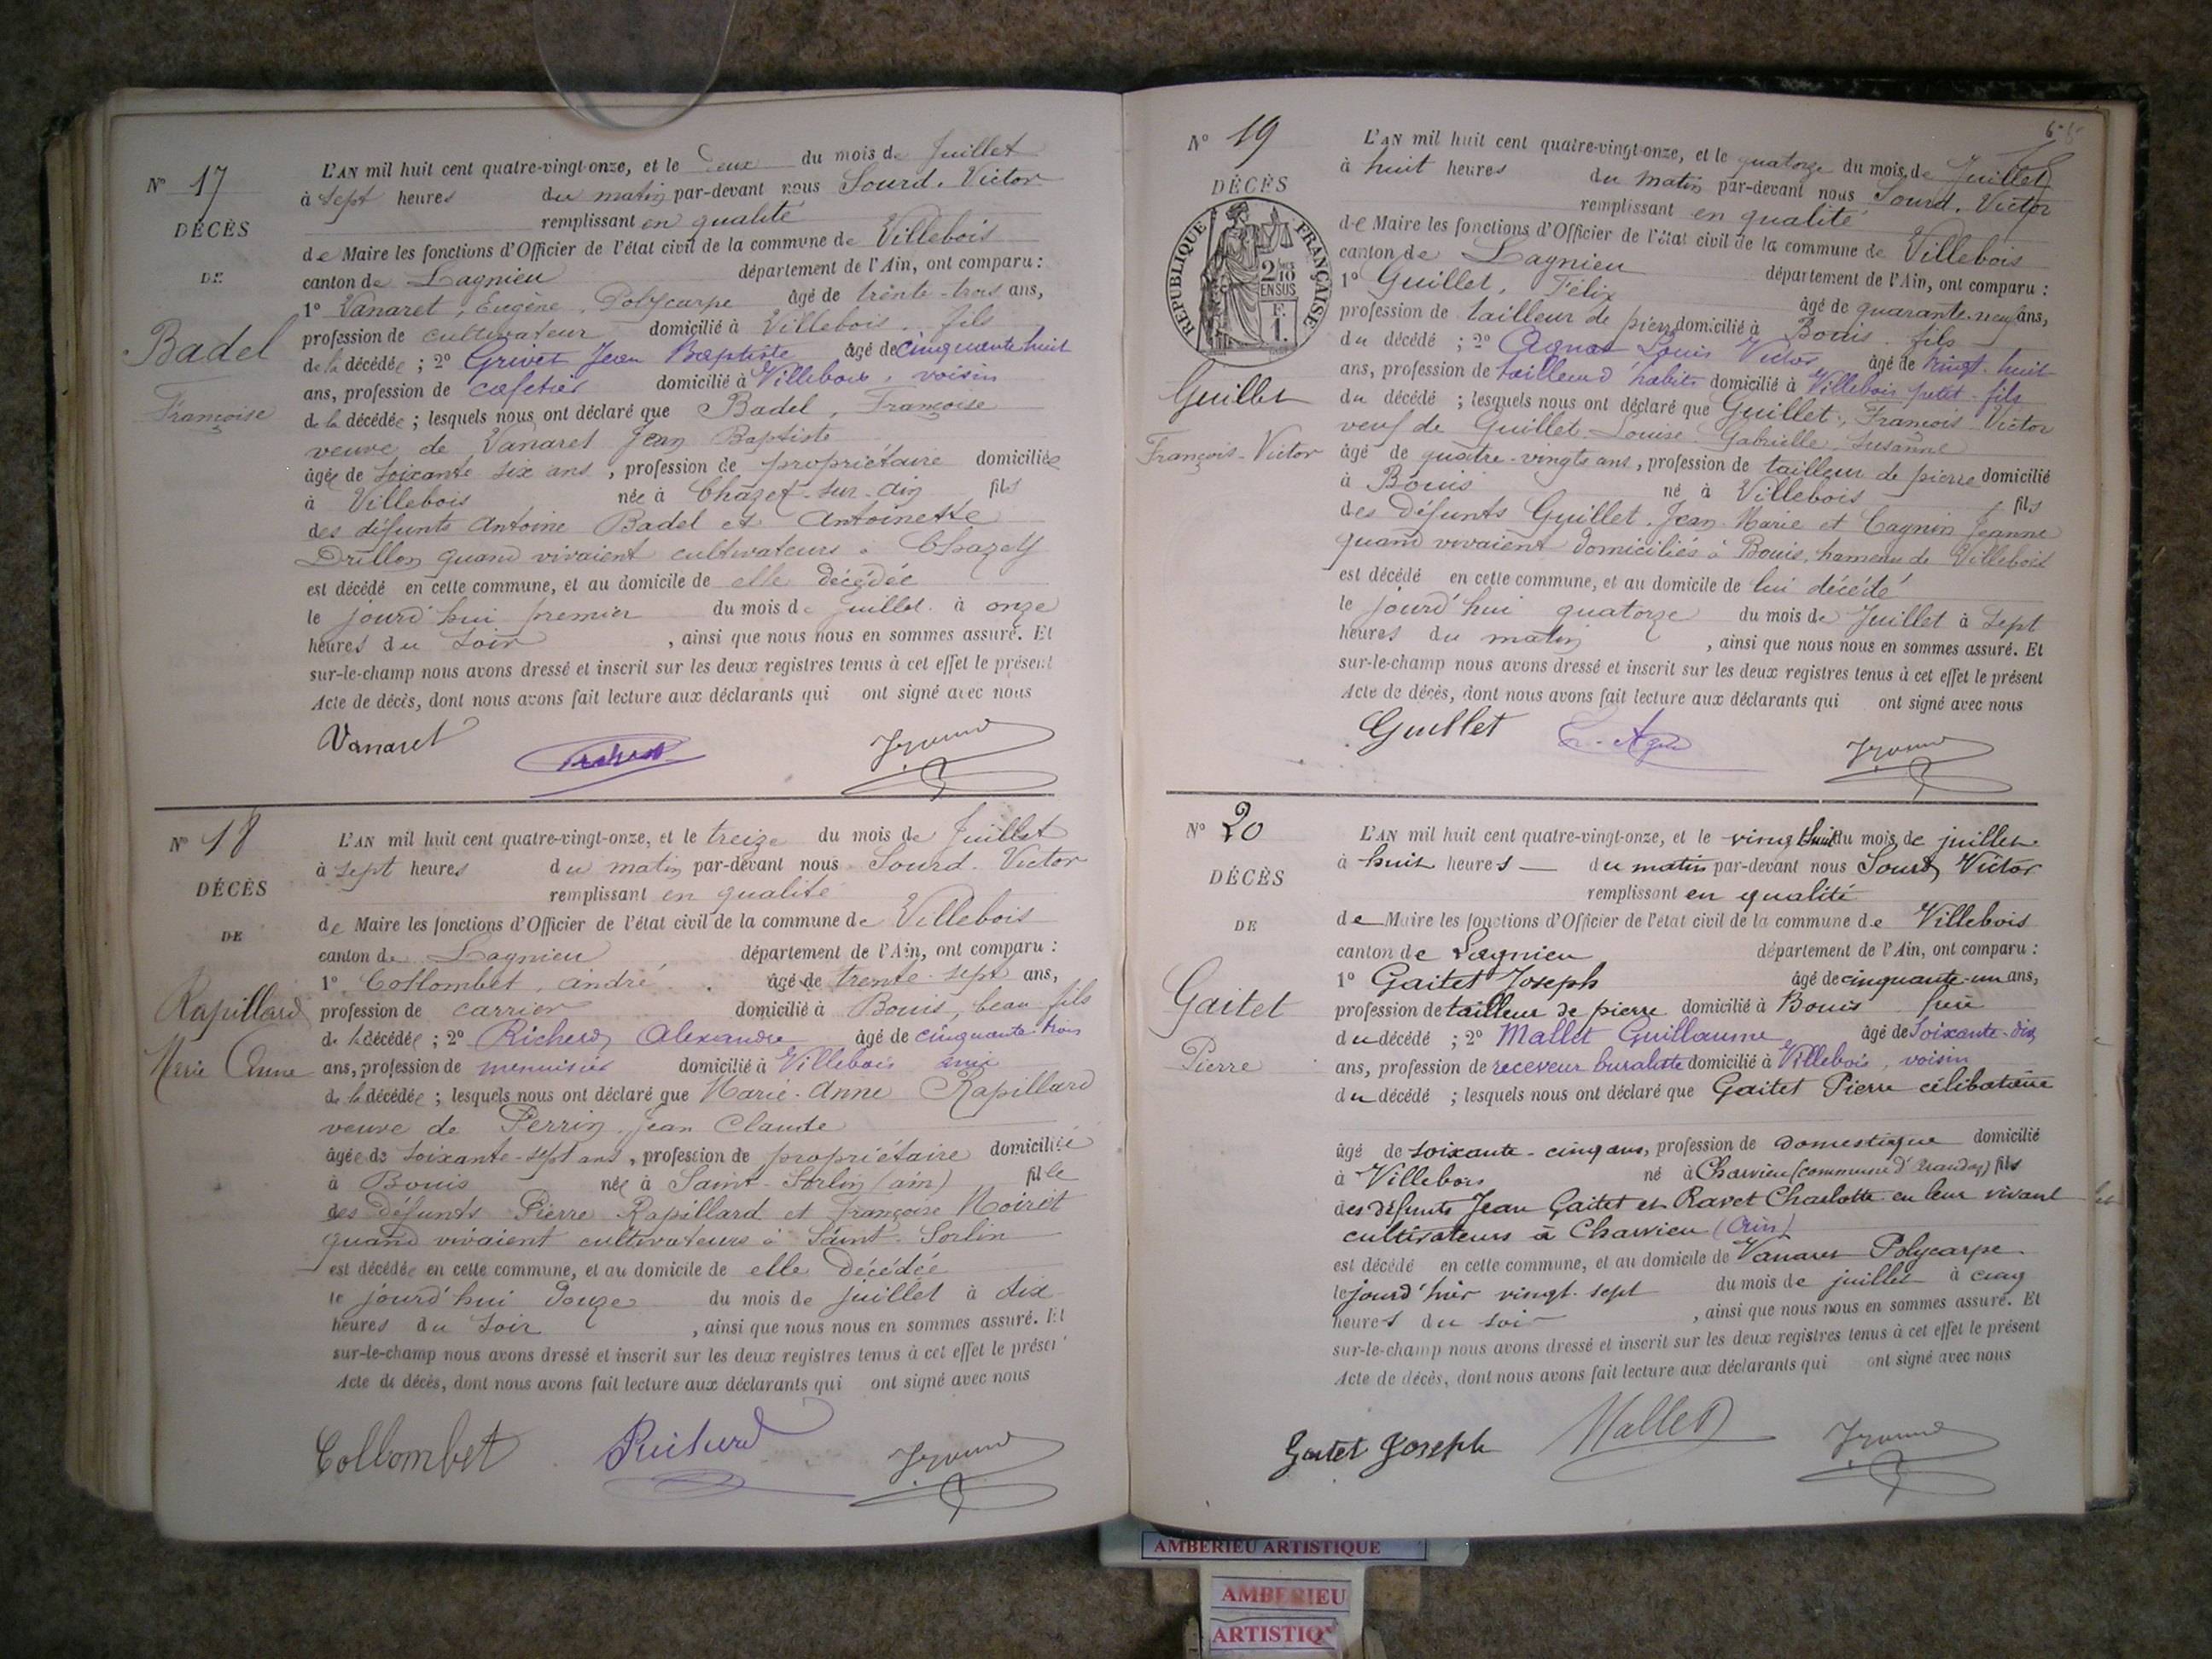 N° 17
DÉCÈS
DE
Badel
Françoise
L'AN mil huit cent quatre-vingt-onze, et le deux du mois de Juillet
à sept heures du matin par-devant nous Sourd. Victor
remplissant en qualité
de Maire les fonctions d'Officier de l'état civil de la commune de Villebois
canton de Lagnieu département de l'Ain, ont comparu :
1° Vanaret, Eugène, Polycarpe âgé de trente-trois ans,
profession de cultivateur domicilié à Villebois. fils
de la décédée ; 2° Grivet Jean Baptiste âgé de cinquante huit
ans, profession de cafetier domicilié à Villebois, voisin
de la décédée ; lesquels nous ont déclaré que Badel, Françoise
veuve de Vanaret Jean Baptiste
âgée de soixante six ans, profession de propriétaire domiciliée
à Villebois née à Chazey-sur-Ain fils
des défunts Antoine Badel et Antoinette
Drillon quand vivaient cultivateurs à Chazey
est décédé en cette commune, et au domicile de elle décédée
le jourd'hui premier du mois de Juillet à onze
heures du soir, ainsi que nous nous en sommes assuré. Et
sur-le-champ nous avons dressé et inscrit sur les deux registres tenus à cet effet le présent
Acte de décès, dont nous avons fait lecture aux déclarants qui ont signé avec nous
Vanaret
N° 18
DÉCÈS
DE
Rapillard
Marie Anne
L'AN mil huit cent quatre-vingt-onze, et le treize du mois de Juillet
à sept heures du matin par-devant nous Sourd. Victor
remplissant en qualité
de Maire les fonctions d'Officier de l'état civil de la commune de Villebois
canton de Lagnieu département de l'Ain, ont comparu :
1° Collombet, andré âgé de trente-sept ans,
profession de carrier domicilié à Bouis, beau-fils
de la décédée ; 2° Richerd Alexandre âgé de cinquante-trois
ans, profession de menuisier domicilié à Villebois ami
de la décédée ; lesquels nous ont déclaré que Marie-Anne Rapillard
veuve de Perrin, Jean Claude
âgée de soixante-sept ans, profession de propriétaire domiciliée
à Bouis née à Saint-Sorlin (ain) fille
des défunts Pierre Rapillard et françoise Noirèt
quand vivaient cultivateurs à Saint-Sorlin
est décédée en cette commune, et au domicile de elle décédée
le jourd'hui douze du mois de juillet à dix
heures du soir, ainsi que nous nous en sommes assuré. Et
sur-le-champ nous avons dressé et inscrit sur les deux registres tenus à cet effet le présen
Acte de décès, dont nous avons fait lecture aux déclarants qui ont signé avec nous
Collombet Richerd
N° 19
DÉCÈS
RÉPUBLIQUE FRANÇAISE
2 10
EN SUS
F.
1.
Guillet
François-Victor
L'AN mil huit cent quatre-vingt-onze, et le quatorze du mois de Juillet
à huit heures du matin par-devant nous Sourd. Victor
remplissant en qualité
de Maire les fonctions d'Officier de l'état civil de la commune de Villebois
canton de Lagnieu département de l'Ain, ont comparu :
1° Guillet, Félix âgé de quarante-neuf ans,
profession de tailleur de pierre domicilié à Bouis. fils
du décédé ; 2° Louis Victor âgé de vingt-huit
ans, profession de tailleur d'habits domicilié à Villebois petit-fils
du décédé ; lesquels nous ont déclaré que Guillet, François Victor
veuf de Guillet. Louise Gabrielle Susanne
âgé de quatre-vingts ans, profession de tailleur de pierre domicilié
à Bouis né à Villebois fils
des défunts Guillet. Jean-Marie et Cagnin Jeanne
quand vivaient domiciliés à Bouis, hameau de Villebois
est décédé en cette commune, et au domicile de lui décédé
le jourd'hui quatorze du mois de Juillet à sept
heures du matin, ainsi que nous nous en sommes assuré. Et
sur-le-champ nous avons dressé et inscrit sur les deux registres tenus à cet effet le présent
Acte de décès, dont nous avons fait lecture aux déclarants qui ont signé avec nous
Guillet
N° 20
DÉCÈS
DE
Gaitet
Pierre
L'AN mil huit cent quatre-vingt-onze, et le vingt huit du mois de juillet
à huit heures du matin par-devant nous Sourd Victor
remplissant en qualité
de Maire les fonctions d'Officier de l'état civil de la commune de Villebois
canton de Lagnieu département de l'Ain, ont comparu :
1° Gaitet Joseph âgé de cinquante-un ans,
profession de tailleur de pierre domicilié à Bouis frère
du décédé ; 2° Mallet Guillaume âgé de soixante-dix
ans, profession de receveur buraliste domicilié à Villebois, voisin
du décédé ; lesquels nous ont déclaré que Gaitet Pierre célibataire
âgé de soixante-cinq ans, profession de domestique domicilié
à Villebois né à Charvieu (commune d'Arandas) fils
des défunts Jean Gaitet et Ravet Charlotte en leur vivant
cultivateurs à Charvieu (Ain)
est décédé en cette commune, et au domicile de Vanaret Polycarpe
le jourd'hier vingt-sept du mois de juillet à cinq
heures du soir, ainsi que nous nous en sommes assuré. Et
sur-le-champ nous avons dressé et inscrit sur les deux registres tenus à cet effet le présent
Acte de décès, dont nous avons fait lecture aux déclarants qui ont signé avec nous
Gaitet Joseph Mallet
AMBERIEU ARTISTIQUE
AMBERIEU
ARTISTIQ